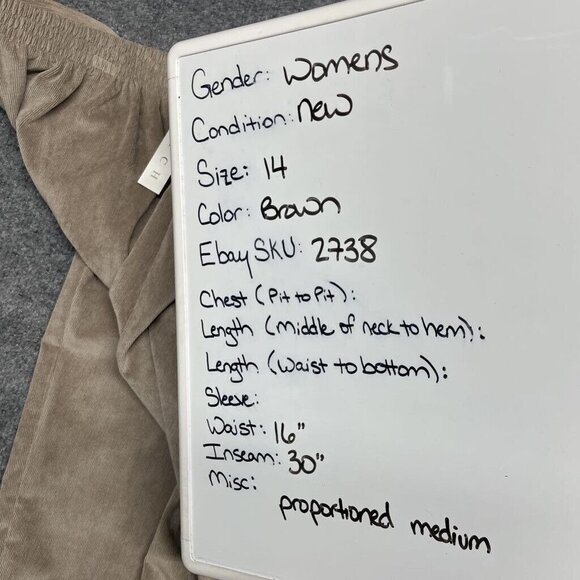 Gender: Womens
Condition: New
Size: 14
Color: Brown
Ebay SKU: 2738
Chest (Pit to Pit):
Length (Middle of neck to hem):
Length (Waist to bottom):
Sleeve:
Waist: 16"
Inseam: 30"
Misc:
proportioned medium
C H